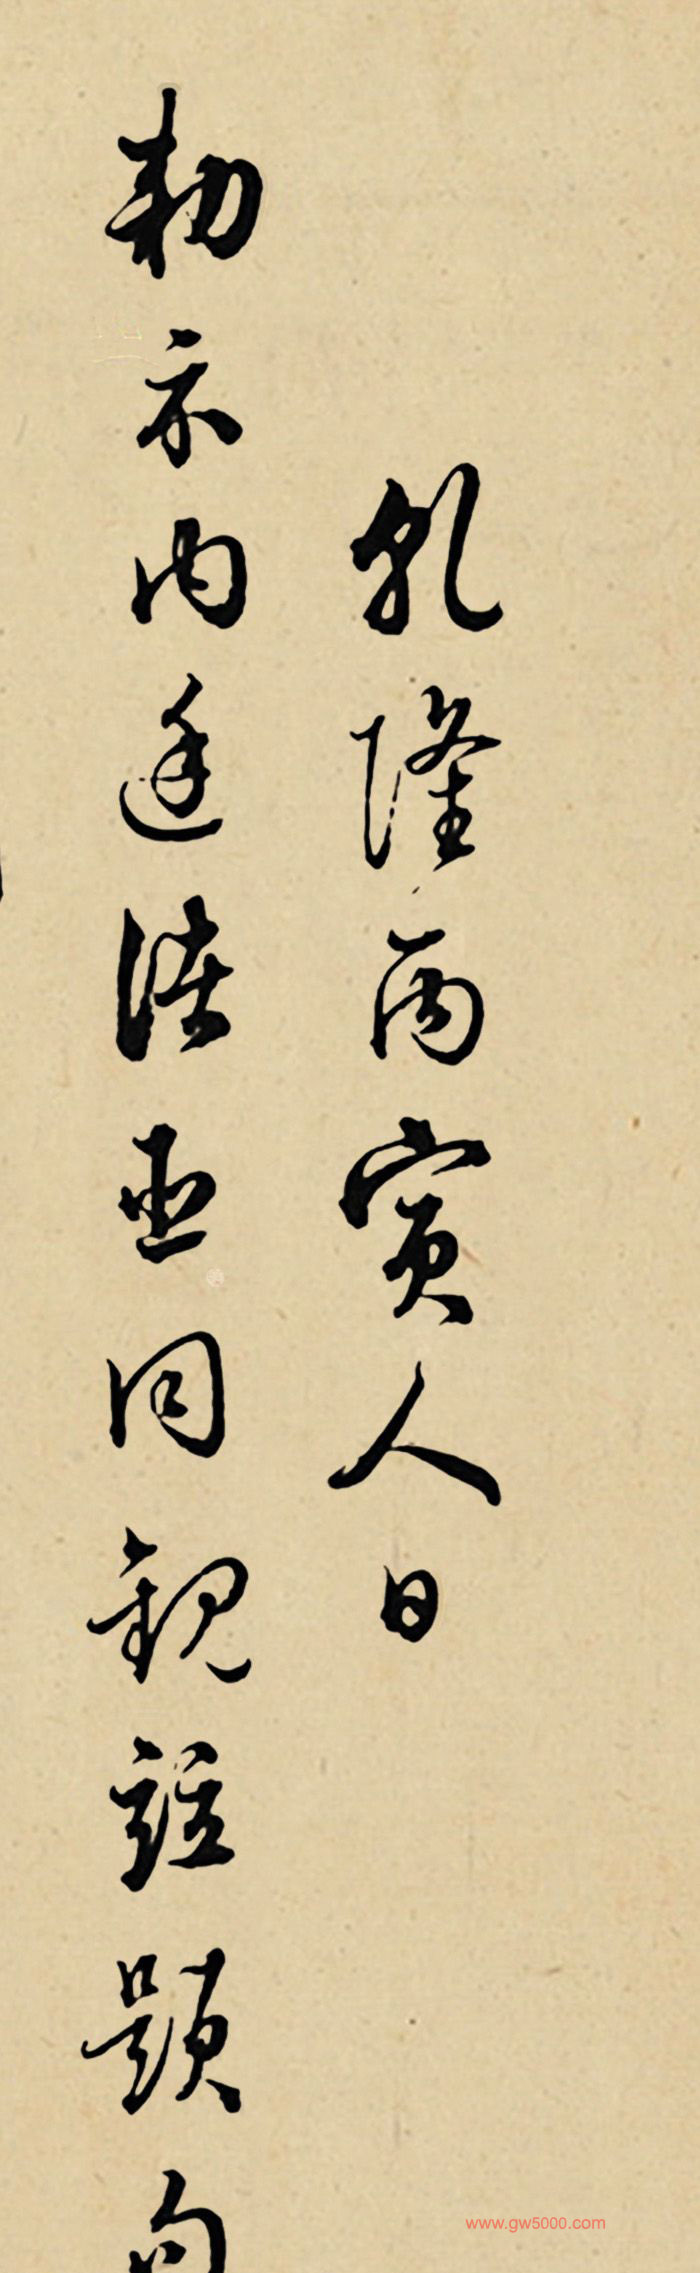 乾隆丙寅人日
勅示内廷諸臣同觀題句
www.gw5000.com